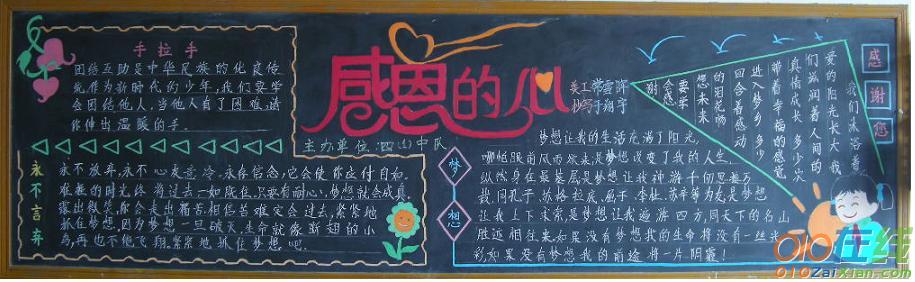 手拉手
团结互助是中华民族的优良传
统作为新时代的少年,我们要学
会团结他人,当他人有了困难,请
你伸出温暖的手.
感恩的心
主办单位:四(1)中队
美工
抄写
感谢您
我们沐浴着
爱的阳光长大
我们滋润着人间的
真情成长 多少次
带着幸福的感觉
进入梦乡 多少
回含着感动
的泪花畅
想未来
要学
会感
谢
永不言弃
永不放弃,永不心灰意冷.永存信念,它会使你应付自如.
难熬的时光终将过去一如既往.只要有耐心,梦想就会成真.
露出微笑,你会走出痛苦.相信苦难定会过去,紧紧地
抓住梦想,因为梦想一旦破灭,生命就像断翅的小
鸟,再也不能飞翔.紧紧地抓住梦想吧
梦想
梦想让我的生活充满了阳光,
哪怕眼前风雨欲来,是梦想改变了我的人生,
纵然身在是梦想让我神游千仞思接万
载,同孔子、苏格拉底、属于、李杜、苏辛等为友是梦想
让我上下求索是梦想让我遍游四方,同天下的名山
胜迹相往来.如果没有梦想我的生命将没有一丝光
彩如果没有梦想我的前途将一片阴霾!
010在线
010ZaiXian.com